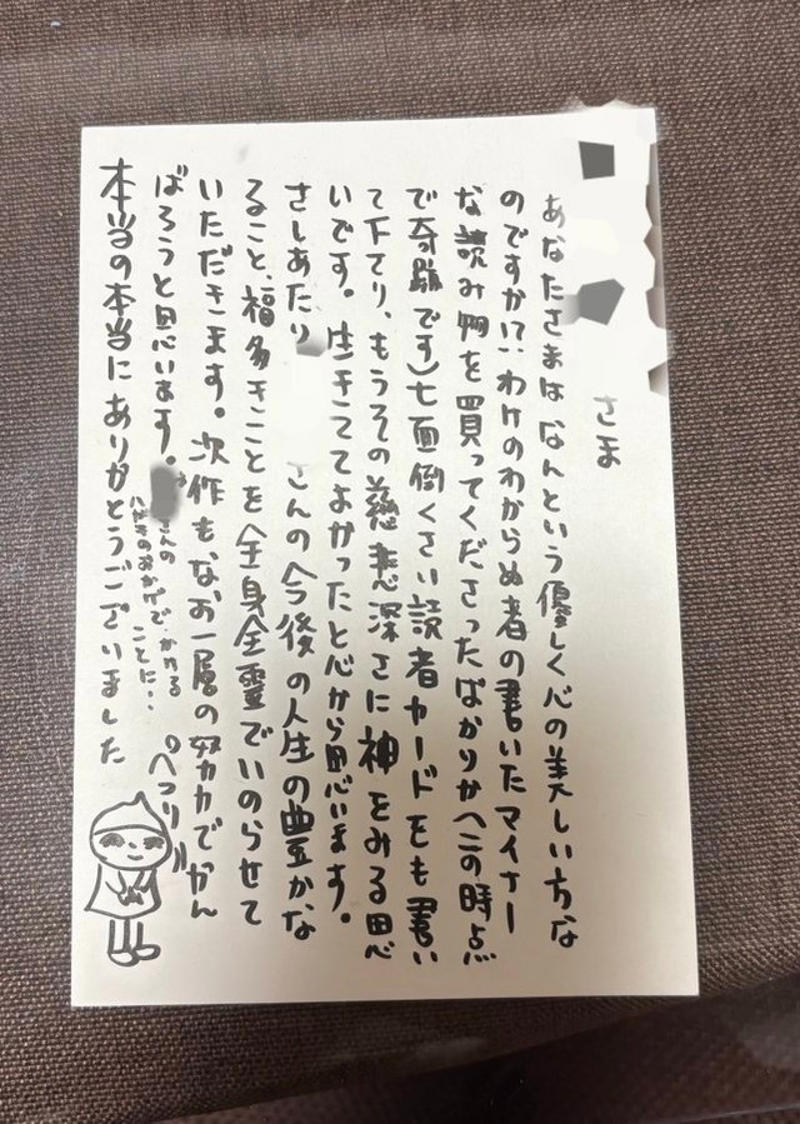 さま
あなたさまはなんという優しく心の美しい方な
のですか!?:わけのわからぬ者の書いたマイナー
な読み物を買ってくださったばかりか(この時点
で奇跡です)七面倒くさい読者カードをも書い
て下さり、もうその慈悲深さに神をみる思
いです。生きててよかったと心から思います。
さしあたり さんの今後の人生の豊かな
ること、福多きことを全身全霊でいのらせて
いただきます。次作もなお一層の努力でがん
ばろうと思います。
さんの
ハガキのおかげで・かける
ことに・・
ぺこり
本当の本当にありがとうございました